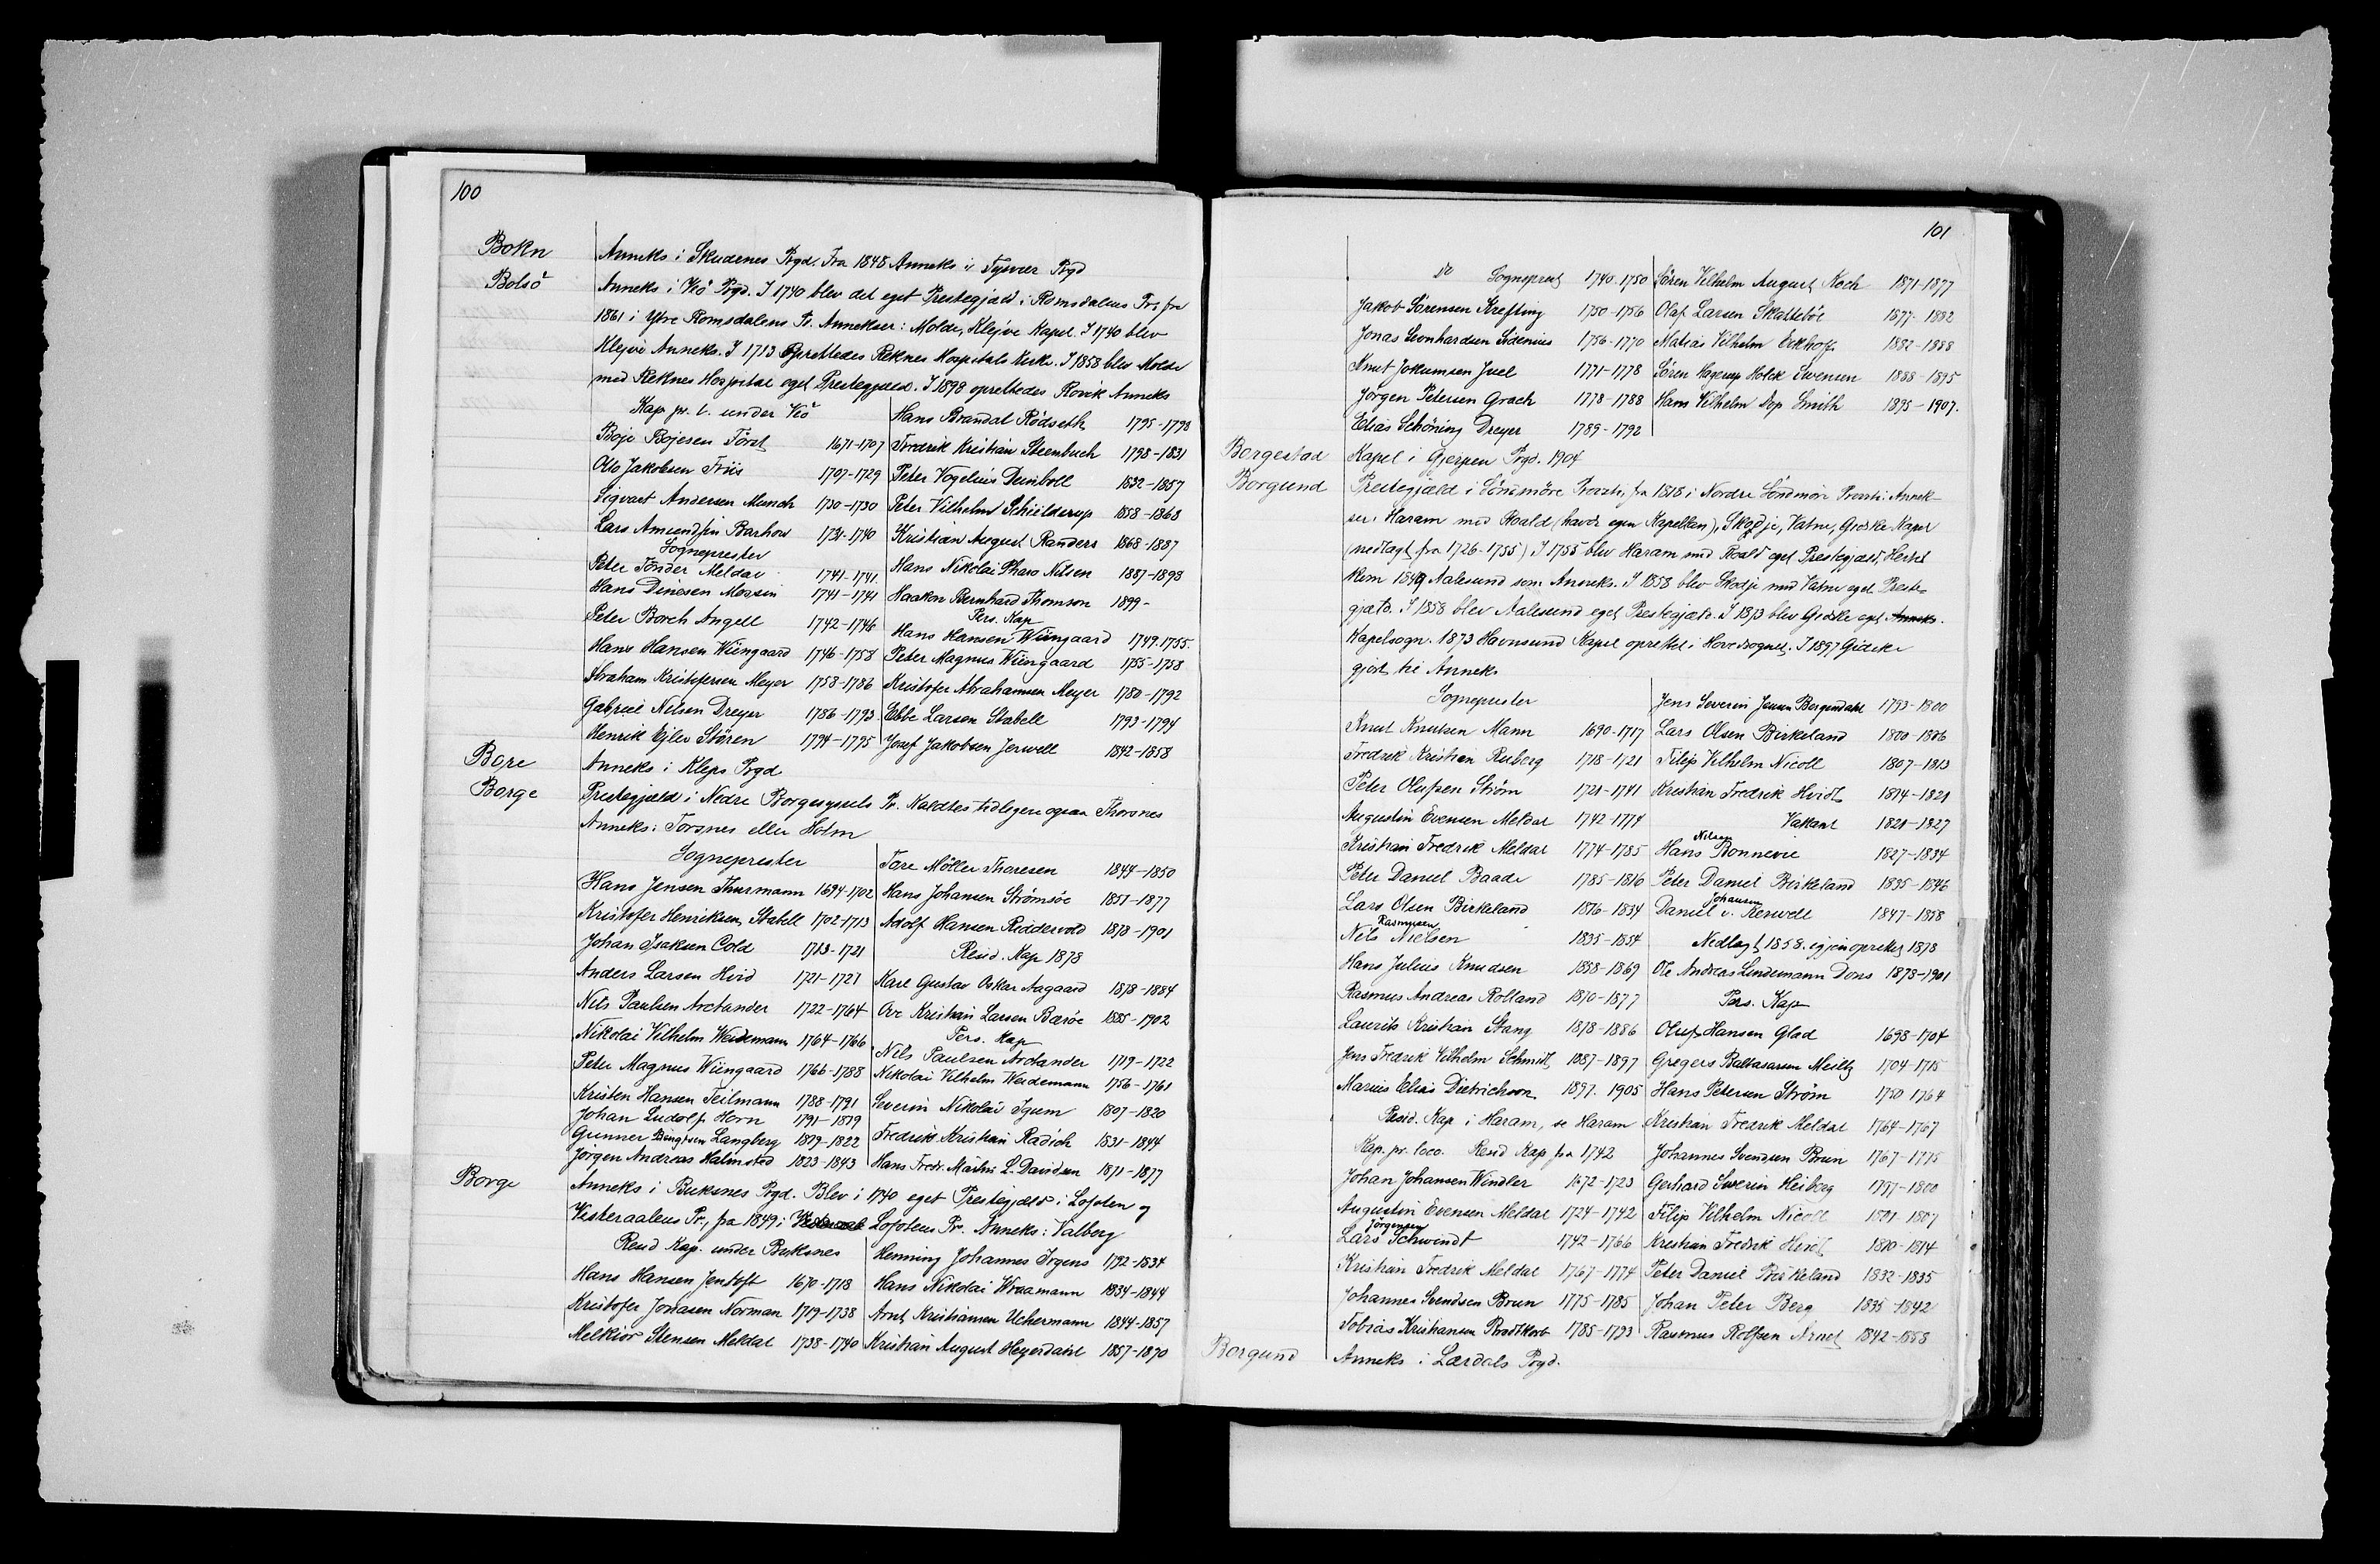 100
Bokn Anneks i Skudenes Prgd. Fra 1848 Anneks i Tysvær Prgd
Bolsö Anneks i Veö Prgd. I 1740 blev det eget Prestegjæld i Romsdalens Pr, fra
1861 i Ytre Romsdalens Pr. Annekser: Molde, Klejve Kapel. I 1740 blev
Klejve Anneks. I 1713 oprettedes Reknes Hospitals Kirke. I 1858 blev Molde
med Reknes Hospital eget Prestegjæld. I 1898 oprettedes Rövik Anneks
Kap pr. l. under Veö
Boje Bojesen Först 1671-1707
Otto Jakobsen Friis 1707-1729
Sigvart Andersen Munch 1730-1730
Lars Amundsen Barhow 1731-1740
Sogneprester
Peter Tönder Meldal 1741-1741
Hans Dinesen Morsin 1741-1741
Peter Borch Angell 1742-1746
Hans Hansen Wiingaard 1746-1758
Abraham Kristofersen Meyer 1758-1786
Gabriel Nilsen Dreyer 1786-1793
Henrik Ejlev Stören 1794-1795
Hans Brandal Rödseth 1795-1798
Fredrik Kristian Steenbuch 1798-1831
Peter Vogelius Deinboll 1832-1857
Peter Vilhelm Schielderup 1858-1868
Kristian August Randers 1868-1887
Hans Nikolai Pharo Nilsen 1887-1898
Haakon Bernhard Thomson 1899-
Pers. Kap
Hans Hansen Wiingaard 1749.1755.
Peter Magnus Wiingaard 1755-1758
Kristofer Abrahamsen Meyer 1780-1792
Ebbe Larsen Stabell 1793-1794
Josef Jakobsen Jerwell 1842-1858
Bore Anneks i Kleps Prgd
Borge Prestegjæld i Nedre Borgesyssels Pr. Kaldtes tidligere ogsaa Thorsnes
Anneks: Torsnes eller Holm
Sogneprester
Hans Jensen Thurmann 1694-1702
Kristofer Henriksen Stabell 1702-1713
Johan Isaksen Cold 1713-1721
Anders Larsen Hvid 1721-1721
Nils Paulsen Arctander 1722-1764
Nikolai Vilhelm Weidemann 1764-1766
Peter Magnus Wiingaard 1766-1788
Kristen Hansen Teilmann 1788-1791
Johan Ludolf Horn 1791-1819
Gunner Bengtsen Langberg 1819-1822
Jörgen Andreas Halmsted 1823-1843
Tore Möller Thoresen 1844-1850
Hans Johansen Strömsöe 1851-1877
Adolf Hansen Riddervold 1878-1901
Resid. Kap 1878
Karl Gustav Oskar Aagaard 1878-1884
Ove Kristian Larsen Baröe 1885-1902
Pers. Kap
Nils Paulsen Arctander 1719-1722
Nikolai Vilhelm Weidemann 1756-1761
Severin Nikolai Igum 1807-1820
Fredrik Kristian Radich 1831-1844
Hans Fredr. Martin L. Davidsen 1871-1877
Borge Anneks i Buksnes Prgd. Blev i 1740 eget Prestegjæld i Lofoten og
Vesteraalens Pr, fra 1849 i Vesteraal Lofotens Pr. Anneks: Valberg
Resid Kap. under Buksnes
Hans Hansen Jentoft 1670-1718
Kristofer Jonasen Norman 1719-1738
Melkior Stensen Meldal 1738-1740
Henning Johannes Irgens 1792-1834
Hans Nikolai Wraamann 1834-1844
Arnt Kristiansen Uchermann 1844-1857
Kristian August Heyerdahl 1857-1870
101
do Sogneprest 1740-1750
Jakob Sörensen Krefting 1750-1756
Jonas Leonhardsen Sidenius 1756-1770
Knut Jokumsen Juel 1771-1778
Jörgen Petersen Grach 1778-1788
Elias Schöning Dreyer 1789-1792
Sören Vilhelm August Koch 1871-1877
Olaf Larsen Skattebøl 1877-1882
Matias Vilhelm Eckhoff 1882-1888
Sören Hagerup Holck Svensen 1888-1895
Hans Vilhelm Dop Smith 1895-1907.
Borgestad Kapel i Gjerpen Prgd. 1904
Borgund Prestegjæld i Söndmöre Provsti, fra 1818 i Nordre Söndmöre Provsti. Annek-
ser: Haram med Roald (havde egen Kapellan), Skodje, Vatne, Giske Kapel
(nedlagt fra 1726-1755) I 1755 blev Haram med Roald eget Prestegjæld, Hertil
kom 1849 Aalesund som Anneks. I 1858 blev Skodje med Vatne eget Preste-
gjæld. I 1858 blev Aalesund eget Prestegjæld. I 1873 blev Giske eget Anneks.
Kapelsogn. 1873 Havnsund Kapel oprettet i Hovedsognet. I 1897 Gidske
gjort til Anneks
Sogneprester
Knut Knutsen Mann 1690-1717
Fredrik Kristian Ruberg 1718-1721
Peter Olufsen Ström 1721-1741
Augustin Evensen Meldal 1742-1774
Kristian Fredrik Meldal 1774-1785
Peter Daniel Baade 1785-1816
Lars Olsen Birkeland 1816-1834
Rasmussen
Nils Nielsen 1835-1854
Hans Julius Knudsen 1858-1869
Rasmus Andreas Rolland 1870-1877
Laurits Kristian Stang 1878-1886
Jens Fredrik Vilhelm Schmidt 1887-1897
Marius Elias Dietrichson 1897. 1905
Resid. Kap i Haram, se Haram
Kap. pr. loco. Resid Kap fra 1742
Johan Johansen Windler 1672-1723
Augustin Evensen Meldal 1724-1742
Jörgensen
Lars Schwindt 1742-1766
Kristian Fredrik Meldal 1767-1774
Johannes Svendsen Brun 1775-1785
Tobias Kristiansen Brodtkorb 1785-1793
Jens Severin Jensen Bergendahl 1793-1800
Lars Olsen Birkeland 1800-1806
Filip Vilhelm Nicoll 1807-1813
Kristian Fredrik Hvidt 1814-1821
Vakant 1821-1827
Nilsen
Hans Bonnevie 1827-1834
Peter Daniel Birkeland 1835-1846
Johansen
Daniel v. Kerwell 1847-1858
Nedlagt 1858. igjen oprettet 1878
Ole Andreas Lindemann Dons 1878-1901
Pers. Kap
Oluf Hansen Glad 1698-1704
Gregers Baltasarsen Meiltz 1704-1715
Hans Petersen Ström 1750 1764
Kristian Fredrik Meldal 1764-1767
Johannes Svendsen Brun 1767-1775
Gerhard Severin Heiberg 1797-1800
Filip Vilhelm Nicoll 1801-1807
Kristian Fredrik Hvidt 1810-1814
Peter Daniel Birkeland 1832-1835
Johan Peter Berg 1835-1842
Rasmus Rolfsen Arnet 1842-1858
Borgund Anneks i Lærdals Prgd.